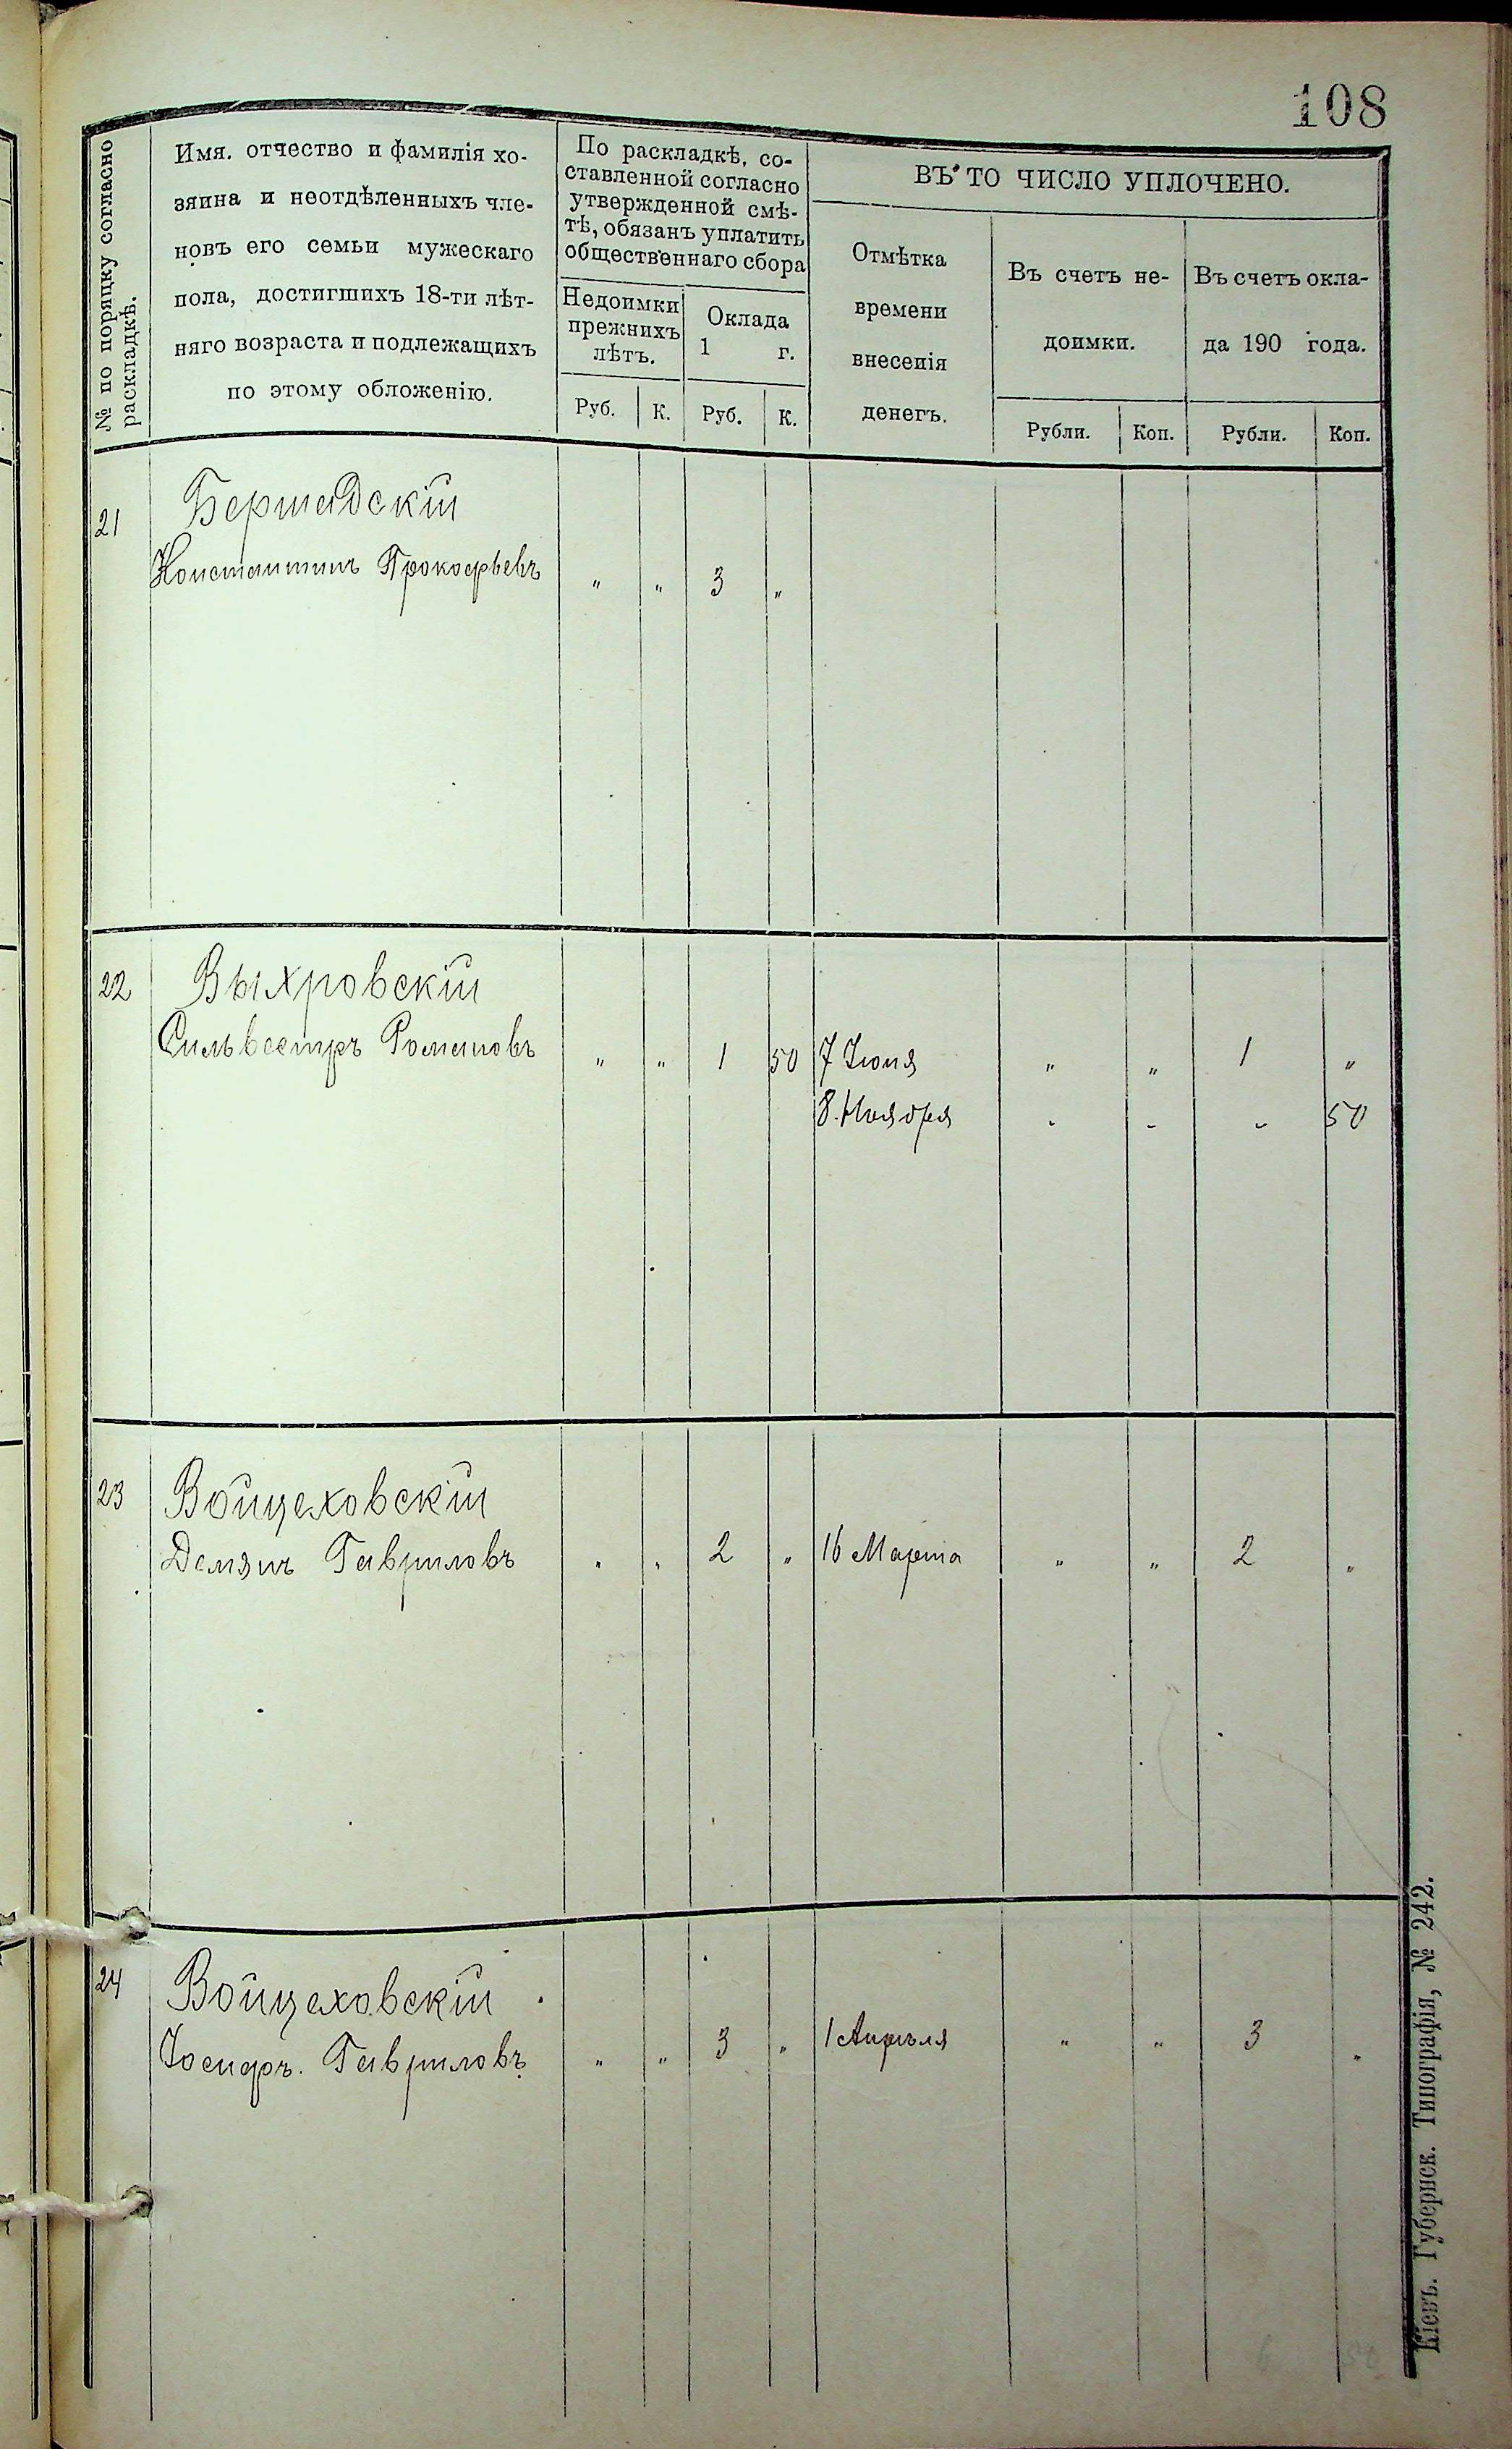 108
№ по поряцку согласно
раскладкѣ.
Имя. отчество и фамилія хо-
зяина и неотдѣленныхъ чле-
новъ его семьи мужескаго
пола, достигшихъ 18-ти лѣт-
няго возраста и подлежащихъ
по этому обложенію.
По раскладкѣ, со-
ставленной согласно
утвержденной смѣ-
тѣ, обязанъ уплатить
общественнаго сбора
Недоимки
прежнихъ
лѣтъ.
Оклада
1 г.
Руб. К. Руб. К.
ВЪ ТО ЧИСЛО УПЛОЧЕНО.
Отмѣтка
времени
внесенія
денегъ.
Въ счетъ не-
доимки.
Въ счетъ окла-
да 190 года.
Рубли. Коп. Рубли. Коп.
21 Бершадскій
Константинъ Прокофьевъ " " 3 "
22 Выхровскій
Сильвестръ Романовъ " " 1 50 7 Іюня " " 1 "
8. Ноября - - - 50
23 Войцеховскій
Демянъ Гавриловъ " " 2 " 16 Марта " " 2 "
24 Войцеховскій
Іосифъ. Гавриловъ " " 3 " 1 Апрѣля " " 3 "
Кіевъ. Губернск. Типографія, № 242.